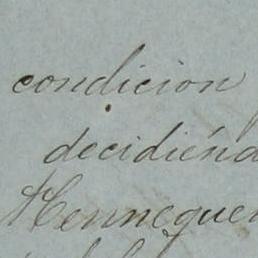 condicion
decidiénd
Hennequen